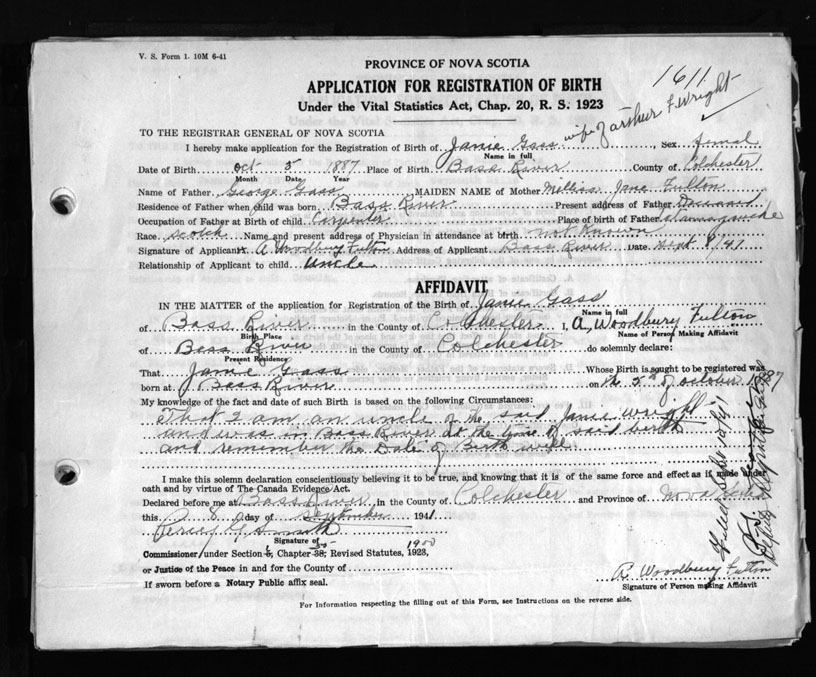 V. S. Form 1. 10M 6-41
PROVINCE OF NOVA SCOTIA
1611
APPLICATION FOR REGISTRATION OF BIRTH
Under the Vital Statistics Act, Chap. 20, R. S. 1923
wife of Arthur F. Wright
TO THE REGISTRAR GENERAL OF NOVA SCOTIA
I hereby make application for the Registration of Birth of Janie Gass, Sex femal
Name in full
Date of Birth Oct 5 1887 Place of Birth Bass River County of Colchester
Month Date Year
Name of Father George Gass MAIDEN NAME of Mother Mellissa Jane Fulton
Residence of Father when child was born Bass River Present address of Father Deceased
Occupation of Father at Birth of child Carpenter Place of birth of Father Tatamagouche
Race Scotch Name and present address of Physician in attendance at birth not Known
Signature of Applicant A Woodbury Fulton Address of Applicant Bass River Date Sept 8/41
Relationship of Applicant to child Uncle
AFFIDAVIT
IN THE MATTER of the application for Registration of the Birth of Janie Gass
Name in full
of Bass River in the County of Colchester I, A Woodbury Fulton
Birth Place Name of Person Making Affidavit
of Bass River in the County of Colchester do solemnly declare:
Present Residence
That Janie Gass Whose Birth is sought to be registered was
born at Bass River on the 5th of October 1887
My knowledge of the fact and date of such Birth is based on the following Circumstances:
That I am an uncle of the said Janie Wright
and was in Bass River at the time of said birth
and remember the Date of Birth well
I make this solemn declaration conscientiously believing it to be true, and knowing that it is of the same force and effect as if made under
oath and by virtue of The Canada Evidence Act.
Declared before me at Bass River in the County of Colchester and Province of Nova Scotia
this day of September 1941
Percy G. Smith
Signature of
Commissioner/under Section 5, Chapter 38, Revised Statutes, 1923, 1900
or Justice of the Peace in and for the County of
If sworn before a Notary Public affix seal.
A. Woodbury Fulton
Signature of Person making Affidavit
For Information respecting the filling out of this Form, see Instructions on the reverse side.